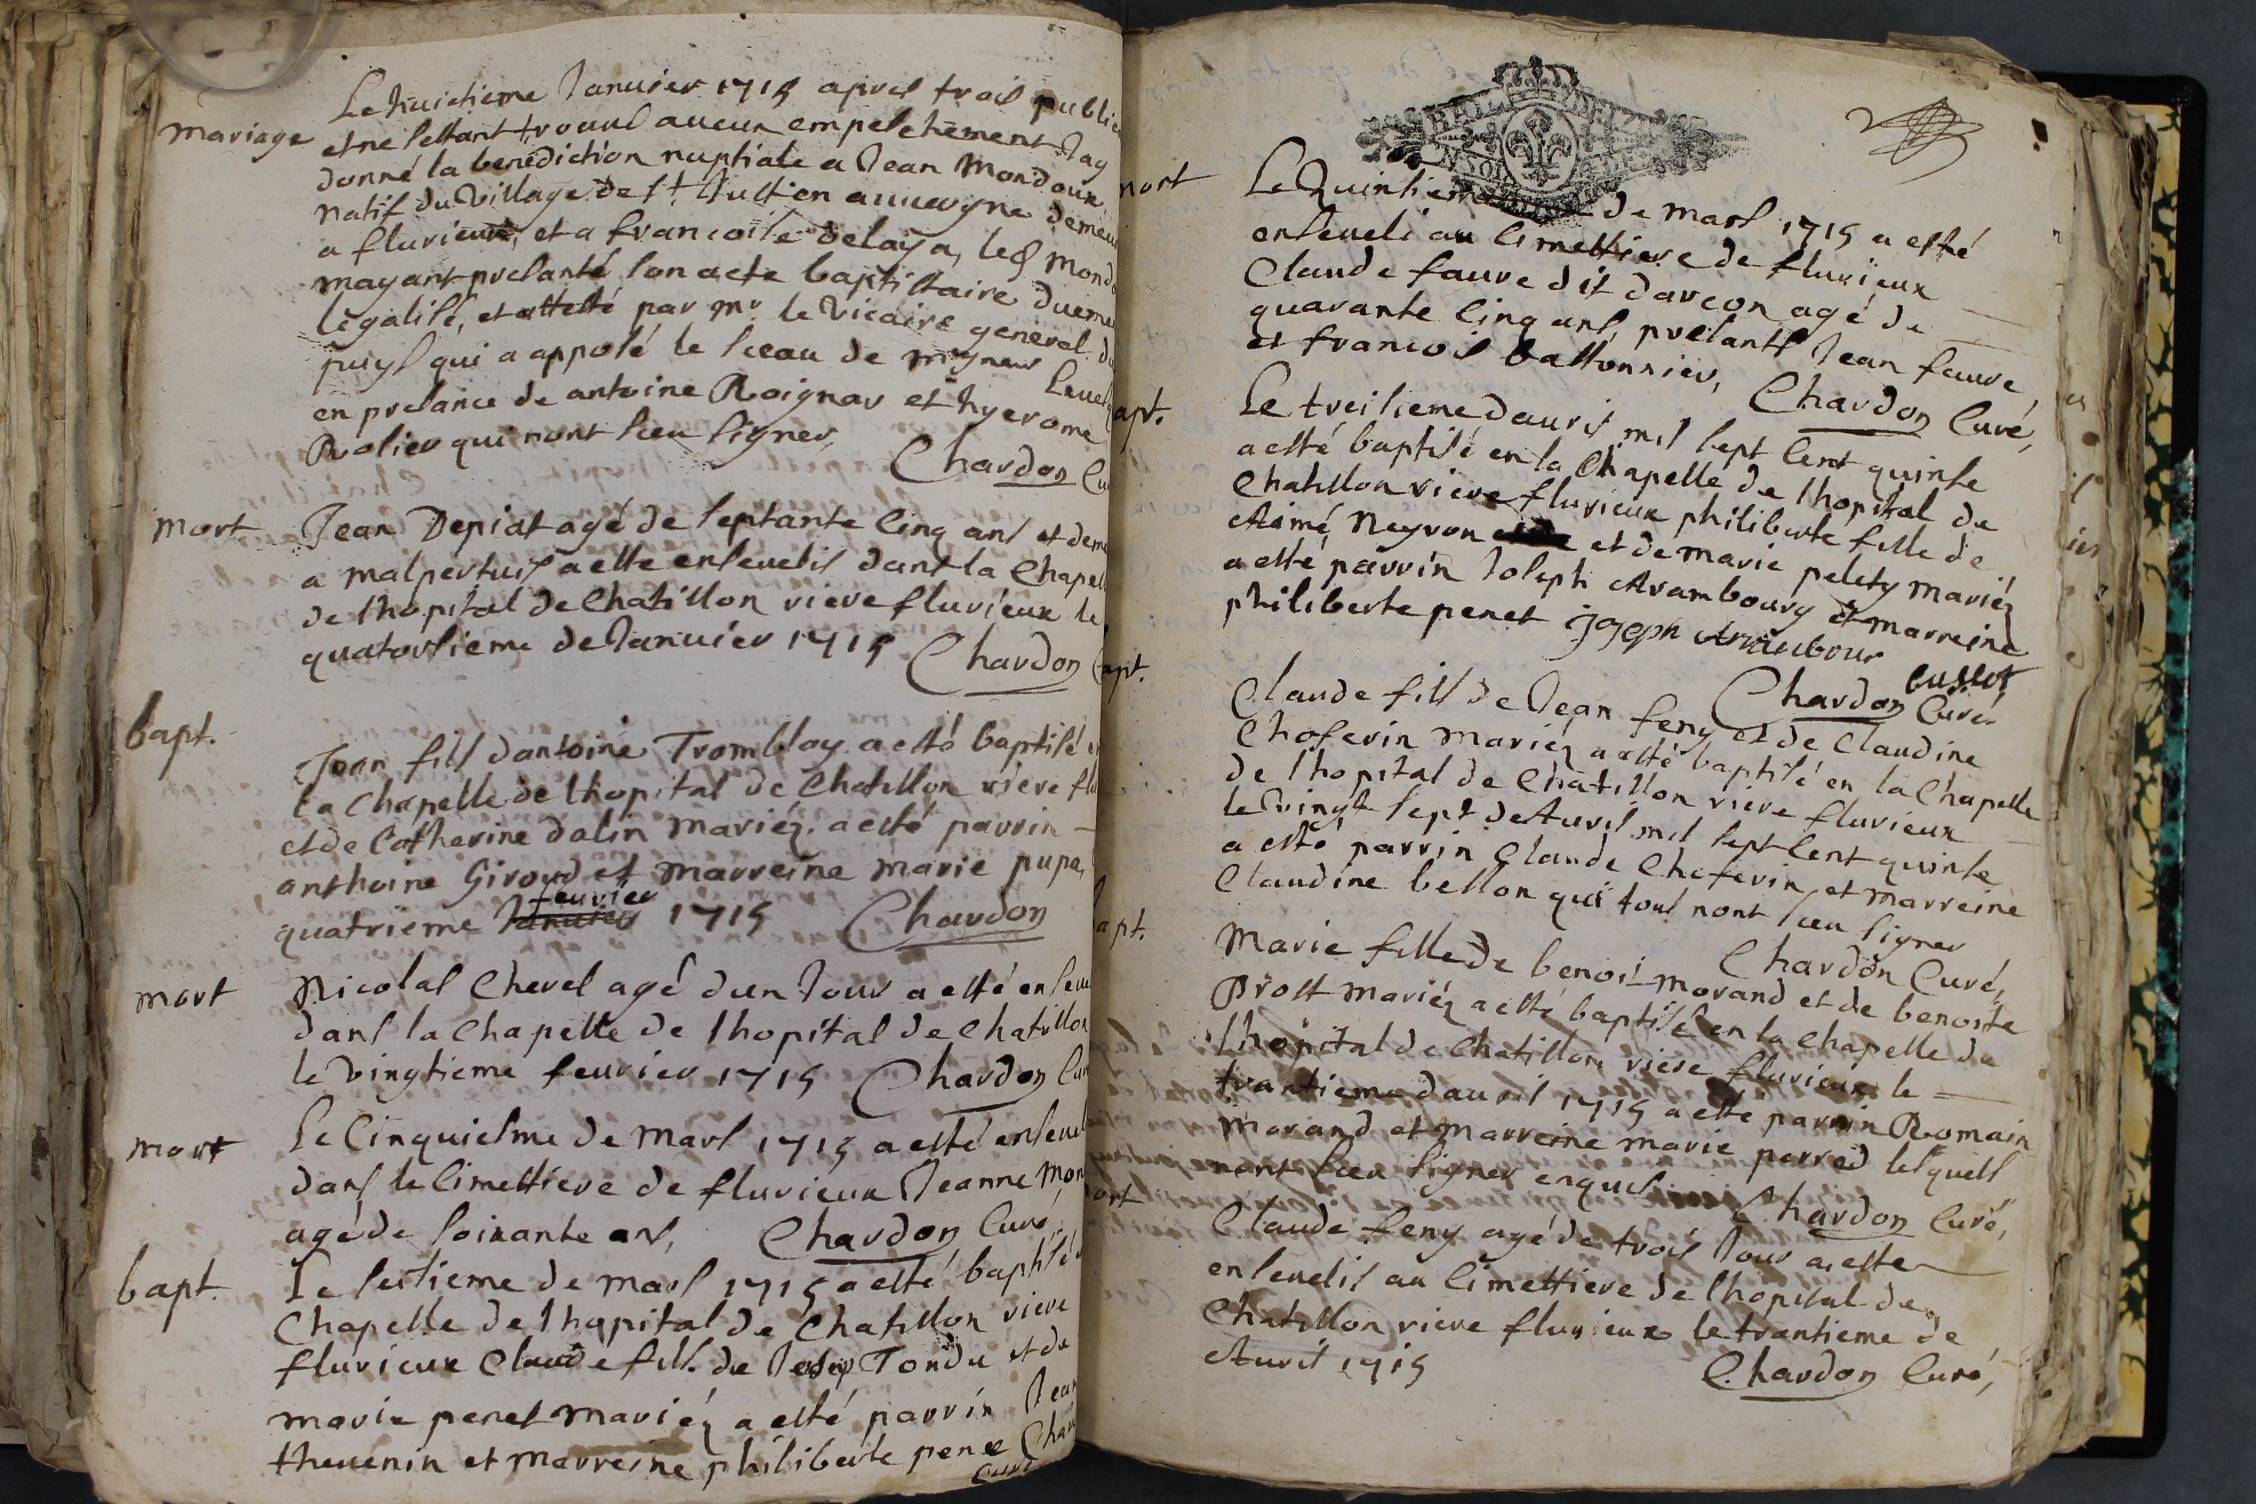 mariage
Le huictieme Januier 1715 apres trois public
et ne sestant trouué aucun empeschement Jay
donné la benediction nuptiale a Jean Mondoux
natif du Village de st Just en auuergne demeu
a flurieux, et a francoise Delaya, led Mondo
mayant presanté son acte baptistaire dueme
legalisé, et attesté par mr le Vicaire general du
puys qui a apposé le sceau de mgneur Leuesq
en presance de antoine Roignar et hyerome
Rolier qui nont sceu signer, Chardon Cu
mort
Jean Depiat agé de septante cinq ans et deme
a malpertuis a este enseuelis dans la Chapell
de lhopital de Chatillon riere fluríeux le
quatorsieme de Januier 1715 Chardon C
bapt.
Jean fils dantoine Tromblay a esté baptisé e
La Chapelle de lhopital de Chatillon riere flu
et de Catherine dalin mariéz. a esté parrin
anthoine Giroud et marreine marie pupe,
feurier
quatrieme Januier 1715 Chardon
mort
Nicolas Chevel agé dun Jour a esté enseue
dans la Chapelle de lhopital de Chatillon
le Vingtieme feurier 1715 Chardon Cur
mort
Le Cinquiesme de Mars 1715 a esté enseuel
dans le Cimettiere de flurieux Jeanne Mon
agé de soixante ans, Chardon Curé
bapt.
Le sestieme de mars 1715 a esté baptisé
Chapelle de lhopital de Chatillon riere
flurieux Claude fils de Josep Tondu et de
marie penet mariéz a esté parrin Jean
theuenin et marreine philiberte penet Char
Curé
mort
Le Quinsieme de mars 1715 a esté
enseueli au Cimettiere de flurieux
Claude faure dit darcon agé de
quarante cinq ans, presants Jean faure,
et francois battonnier, Chardon Curé,
apt.
Le treisieme dauril mil sept Cent quinse
a esté baptisé en la Chapelle de lhopital de
Chatillon riere flurieux philiberte fille de
Aimé Neyron et de marie pelety mariéz
a esté parrin Joseph Arambourg et marreine
philiberte penet joseph Arambour
Cussot
Chardon Curé
apt.
Claude fils de Jean feny et de Claudine
Choferin mariéz a esté baptisé en la Chapelle
de lhopital de Chatillon riere flurieux
le Vingt sept de Auril mil sept Cent quinse
a esté parrin Claude Choferin, et marreine
Claudine bellon qui tous nont sceu signer
Chardon Curé,
apt.
Marie fille de benoit morand et de benoite
Prost mariéz a esté baptisé en la Chapelle de
lhopital de Chatillon riere flurieux le
trantieme dauril 1715 a esté parrin Romain
Morand et marreine marie perred lesquels
nont sceu signer enquis Chardon Curé,
ort
Claude feny agé de trois Jour a este
enseuelis au Cimettiere de lhopital de
Chatillon riere flurieux le trantieme de
Auril 1715 Chardon Curé,